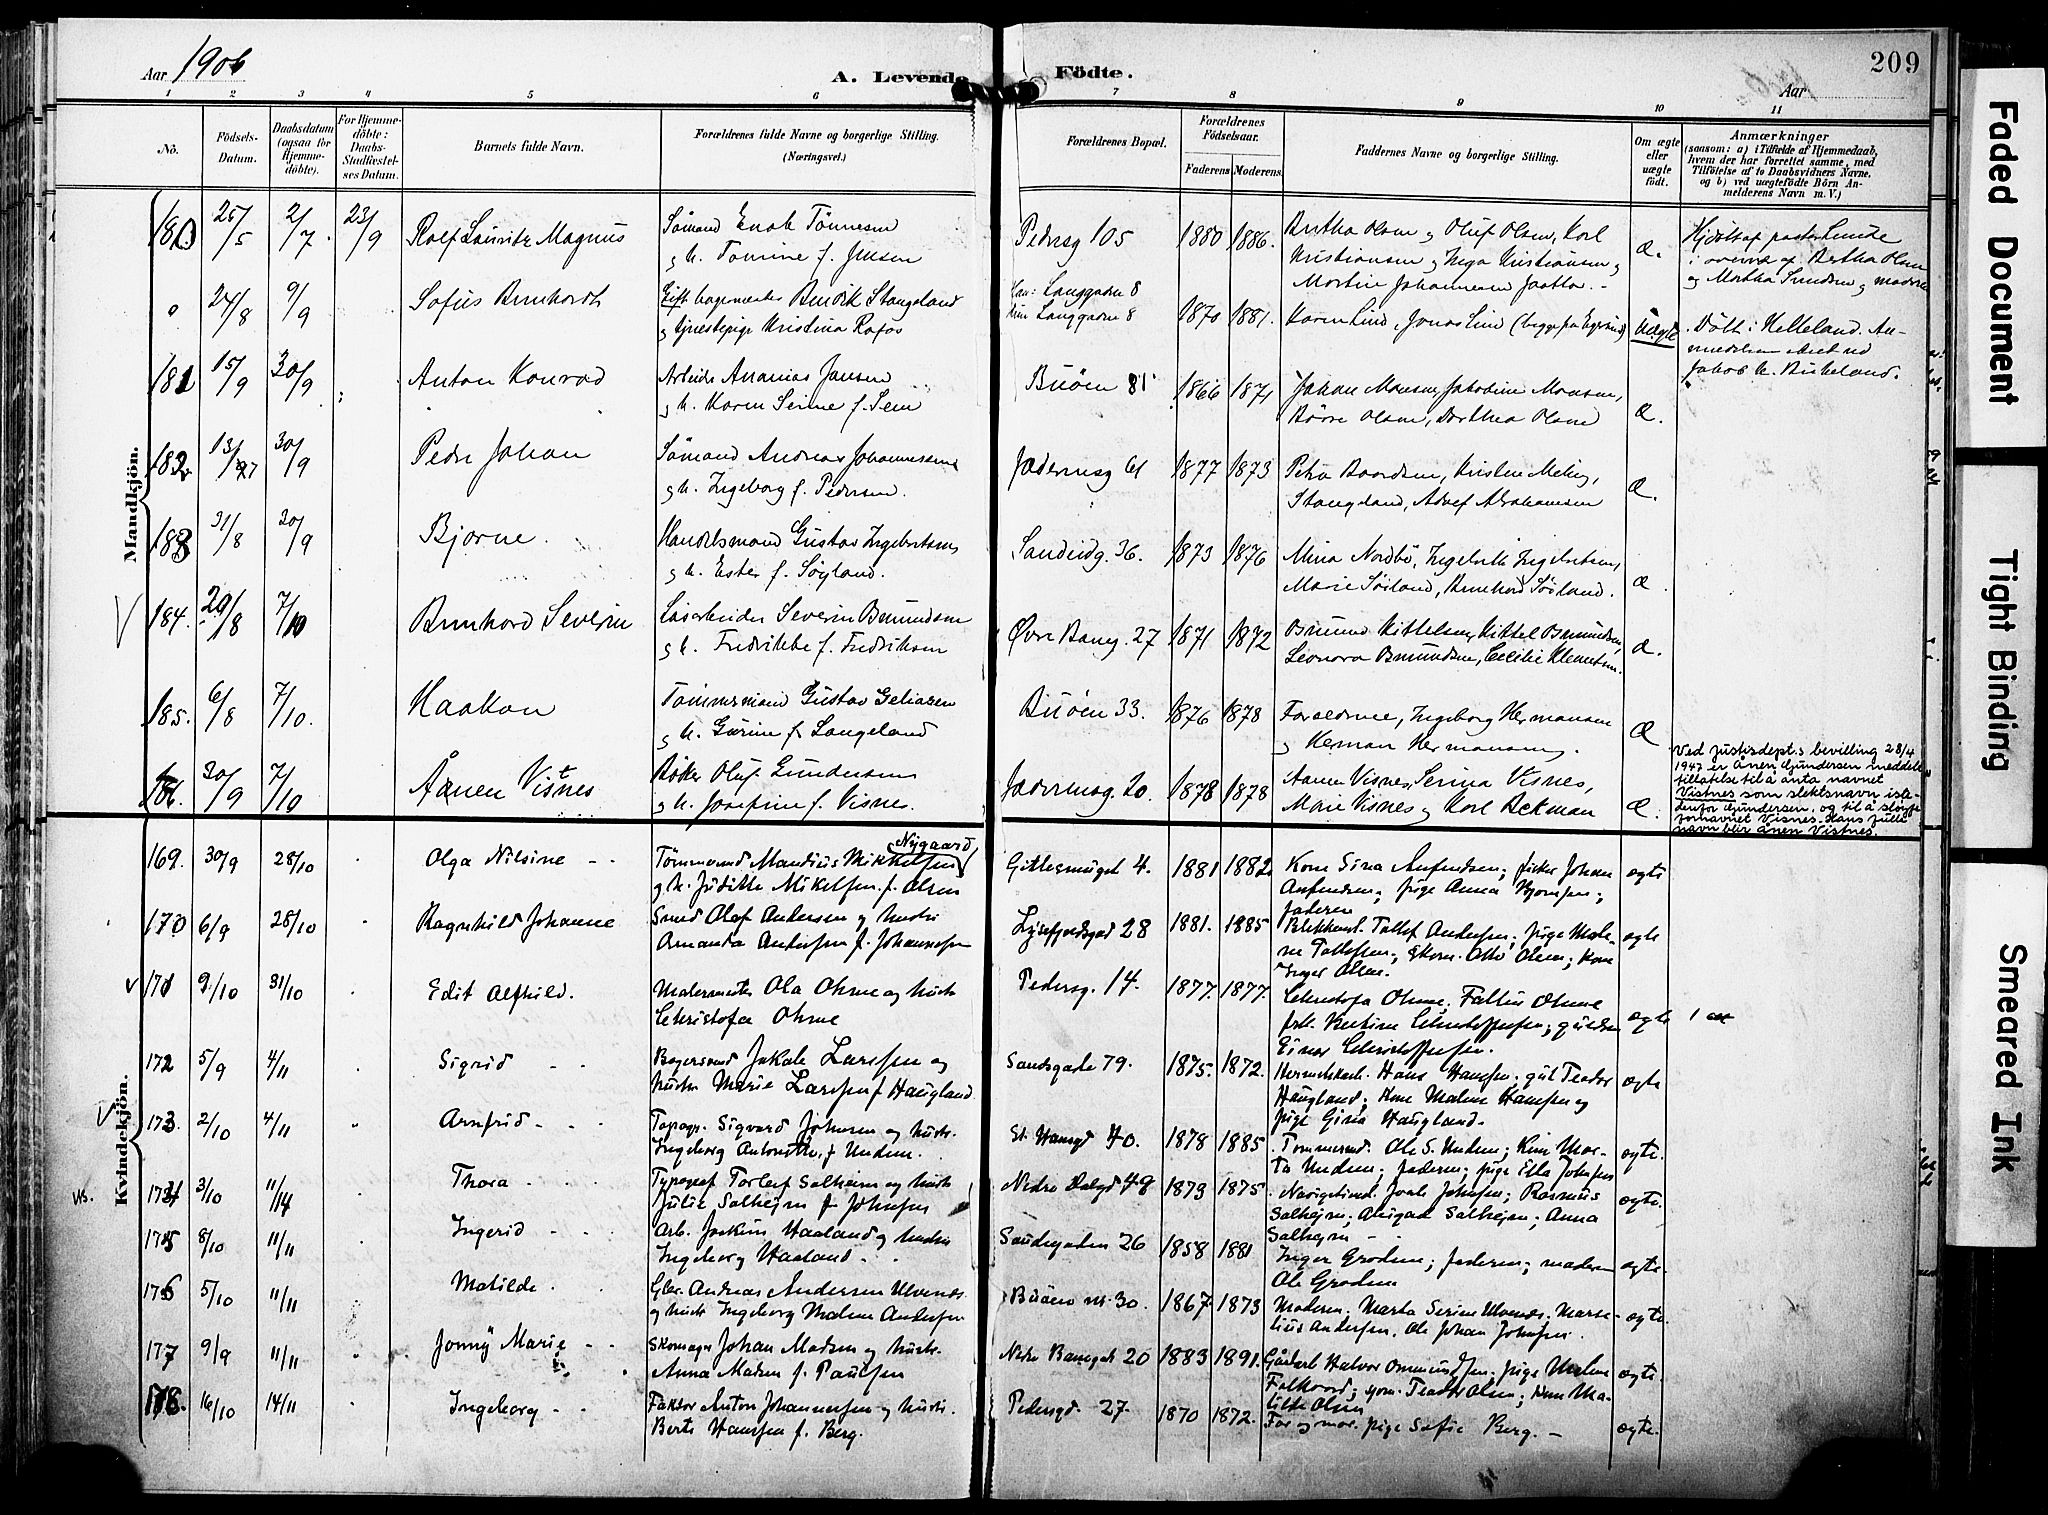 Aar 1906
A. Levende Födte.
209
Aar
1 2 3 4 5 6 7 8 9 10 11
No.
Födsels-
Datum.
Daabsdatum
(ogsaa for
Hjemme-
döbte).
For Hjemme-
döbte:
Daabs-
Stadfæstel-
ses Datum.
Barnets fulde Navn.
Forældrenes fulde Navne og borgerlige Stilling.
(Næringsvei.)
Forældrenes Bopæl.
Forældrenes
Födselsaar.
Faderens Moderens
Faddernes Navne og borgerlige Stilling.
Om ægte
eller
uægte
födt.
Anmærkninger
(saasom: a) i Tilfælde af Hjemmedaab,
hvem der har forrettet samme, med
Tilföielse af to Daabsvidners Navne.
og b) ved uægtefödte Börn An-
melderens Navn m. V.)
Mandkjön.
180 25/5 2/7 23/9 Rolf Lauritz Magnus
Sømand Enok Tönnesen
og h. Tomine f. Jensen
Pedersg 105 1880 1886.
Bertha Olsen og Oluf Olsen, Karl
Kristiansen og Inga Kristiansen og
Martin Johannesen Jaatta. -
Æ.
Hjdöbt af pastor Lunde
i overvær af Bertha Olsen
og Martha Knudsen og moderen
" 24/8 9/9 Sofus Bernhardt
Gift bagermester Bendik Stangeland
og tjenestepige Kristina Rafos
Han: Langgaden 8
hun Langgaden 8
1870 1881.
Karen Lind, Jonas Lind (begge fra Egersund)
Uægte
Døbt i Helleland. An-
meldelsen sket ved
Jakob K. Birkeland.
181 15/9 30/9 Anton Konrad
Arbeider Ananias Jansen
og h. Karen Serine f. Sem
Buöen 81 1866 1871
Johan Monsen, Jakobine Monsen,
Börre Olsen, Dorthea Olsen
Æ.
182 13/7 30/9 Peder Johan
Sömand Andreas Johannessen
og h. Ingeborg f. Pedersen.
Jæderensg 61 1877 1873
Petra Baardsen, Kristen Meling,
Stangeland, Adolf Abrahamsen
Æ.
183 31/8 30/9 Bjarne.
Handelsmand Gustav Ingebretsen
og h. Ester f. Søyland.
Sandeidg. 36. 1873 1876
Mina Nordbö, Ingebrikt Ingebretsen,
Marie Söiland, Bernhard Söiland.
Æ.
184. 29/8 7/10 Bernhard Severin
Løsarbeider Severin Osmundsen
og h. Fredrikke f. Fredriksen
Øvre Baneg. 27 1871 1872
Osmund Kittelsen, Kittel Osmundsen,
Leonora Osmundsen, Cecilie Klemetsen.
Æ.
185. 6/8 7/10. Haakon
Tömmermand Gustav Eeliasen
og h. Gurine f. Langeland
Buöen 33. 1876 1878
Forældrene, Ingeborg Hermansen
og Herman Hermansen.
Æ
186. 30/9 7/10 Ånen Vistnes
Bödker Oluf Gundersen
og h. Josefine f. Visnes.
Jæderensg. 20. 1878 1878
Aanen Visnes, Serina Visnes,
Marie Visnes og Karl Rekman
Æ.
Ved justisdept.s bevilling 28/4
1947 er Ånen Gundersen meddelt
tillatelse til å anta navnet
Vistnes som slektsnavn iste-
denfor Gundersen, og til å sløyfe
fornavnet Visnes. Hans fulle
navn blir Ånen Vistnes.
Kvindekjön.
169. 30/9 28/10 Olga Nilsine
Nygaard
Tömmermd Mandius Mikkelsen
og h. Juditte Mikelsen f. Olsen
Gitlesmuget 4. 1881 1882
Kone Sina Anfindsen; fisker Johan
Anfindsen; pige Anna Bjørnsen;
faderen
ægte
170 6/9 28/10 Ragnhild Johanne
Smed Olaf Andersen og hustru
Amanda Andersen f. Johannesen
Lysefjordsgad 28 1881. 1885
Blikkensl. Tollef Andersen; pige Male-
ne Tollefsen; Skom. Otto Olsen; kone
Inger Olsen.
ægte
171 9/10 31/10 Edit Alfhild.
Malermester Ola Ohme og hustr
Christofa Ohme
Pedersg. 14. 1877. 1877.
Christofa Ohme; Fallin Ohme
frk. Bertine Christoffersen; guldsm
Einar Christoffersen.
ægte
172 5/9 4/11 Sigrid
Bagersvend Jakob Larssen og
hustr Marie Larssen f Haugland
Sandsgade 79. 1875. 1872.
Hermetikarb. Hans Hanssen. gut Teodor
Haugland; Kone Malene Hanssen og
pige Gina Haugland.
ægte
173. 2/10 4/11 Arnfrid
Topogr. Sigvard Johnsen og hustr.
Ingeborg Antonette, f Undem.
St. Hansgd 40. 1878 1885.
Tömmermd. Ole S. Undem; Kone Mar-
ta Undem; faderen; pige Ella Johnsen
ægte.
174 3/10 11/14 Thora
Typograf Torleif Salhejm og hustr
Julie Salhejm f Johnsen
Nedre Dalgd 48 1879 1875
Navigationsl. Joak Johnsen; Rasmus
Salhejm; Abigael Salhejm; Anna
Salhejm
ægte.
175 8/10 11/11 Ingerid
Arb. Joakim Haaland og hustru
Ingeborg Haaland.
Sandegaden 26 1858 1881
Inger Grodem; faderen; moderen
Ole Grodem
ægte.
176 5/10 11/11 Matilde.
Gbr. Andreas Andersen Ulvenes
og hustr Ingeborg Malene Andersen
Buöen nr. 30. 1867 1873
Moderen. Marta Serine Ulvenes. Marse-
lius Andersen, Ole Johan Johnsen.
ægte.
177 9/9 11/11 Jonny Marie
Skomager Johan Madsen og hustr.
Anna Madsen f. Paulsen
Nedre Banegade 20 1883 1891.
Gårdarb Halvor Ommundsen, pige Malene
Falkvord; gom. Teodor Olsen; Kone Ma-
tilde Olsen
ægte.
178. 16/10 14/11 Ingeborg
Faktor Anton Johannesen og hustr.
Berte Hanssen f. Berg.
Pedersgd. 27. 1870 1872.
Far og mor. pige Sofie Berg. -
ægte.
Faded Document
Tight Binding
Smeared Ink